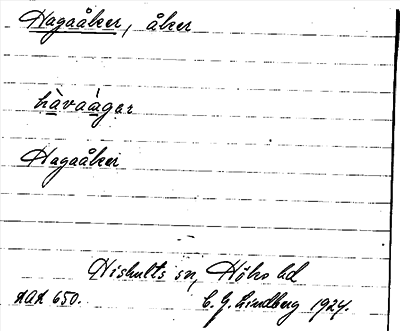 Hagaåker, åker
hàvaàgar
Hagaåker
Hishults sn, Höks hd
AUA 650. C. G. Lindberg 1924.